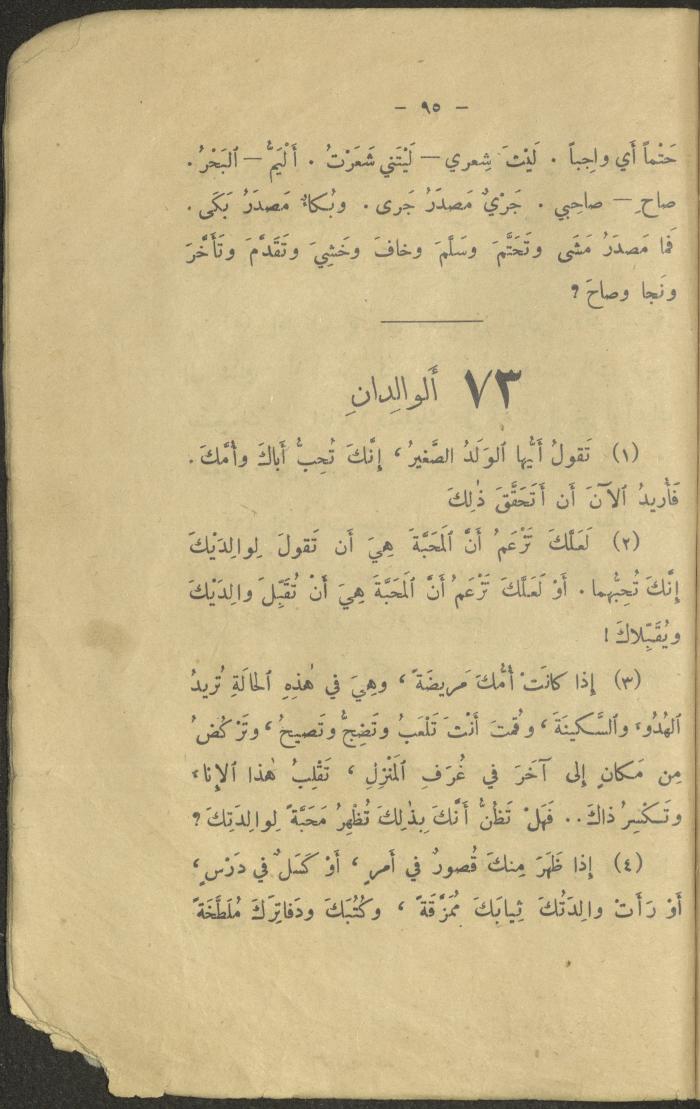 — ٩٥ —
حَتْماً أَي واجِباً . لَيْتَ شِعري — لَيْتَني شَعَرْتُ . أَلْيَمُّ — ٱلبَحْرُ .
صاحِ — صاحِبي . جَرْيٌ مَصدَرُ جَرى . وبُكاءٌ مَصدَرُ بَكَى .
فَما مَصدَرُ مَشَى وتَحَتَّمَ وسَلَّمَ وخافَ وخَشِيَ وتَقَدَّمَ وتَأَخَّرَ
ونَجا وصاحَ ؟
٧٣ أَلوالِدانِ
(١) تَقولُ أَيُّها ٱلوَلَدُ الصَّغيرُ ، إِنَّكَ تُحِبُّ أَباكَ وأُمَّكَ .
فَأُريدُ ٱلآنَ أَن أَتَحَقَّقَ ذٰلِكَ
(٢) لَعَلَّكَ تَزْعَمُ أَنَّ ٱلمَحَبَّةَ هِيَ أَن تَقولَ لِوالِدَيْكَ
إِنَّكَ تُحِبُّهما . أَوْ لَعَلَّكَ تَزْعَمُ أَنَّ ٱلمَحَبَّةَ هِيَ أَنْ تُقَبِّلَ والِدَيْكَ
ويُقَبِّلاكَ !
(٣) إِذا كانَتْ أُمُّكَ مَريضَةً ، وهِيَ في هٰذِهِ ٱلحالَةِ تُريدُ
ٱلهُدُوءَ وٱلسَّكينَةَ ، وقُمتَ أَنْتَ تَلْعَبُ وتَضِجُّ وتَصيحُ ، وتَرْكُضُ
مِن مَكانٍ إِلى آخَرَ في غُرَفِ ٱلمَنْزِلِ ، تَقْلِبُ هٰذا ٱلإِناءَ
وتَكْسِرُ ذاكَ .. فَهَلْ تَظُنُّ أَنَّكَ بِذٰلِكَ تُظْهِرُ مَحَبَّةً لِوالِدَتِكَ ؟
(٤) إِذا ظَهَرَ مِنكَ قُصورٌ في أَمرٍ ، أَوْ كَسَلٌ في دَرْسٍ ،
أَوْ رَأَتْ والِدَتُكَ ثِيابَكَ مُمَزَّقَةً ، وكُتُبَكَ ودَفاتِرَكَ مُلَطَّخَةً